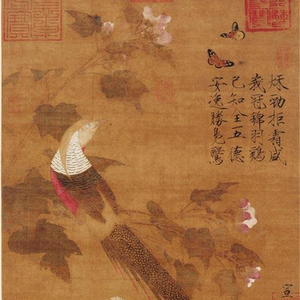 秋勁拒霜盛
峩冠錦羽雞
已知全五德
安逸勝鳧鷖
宣